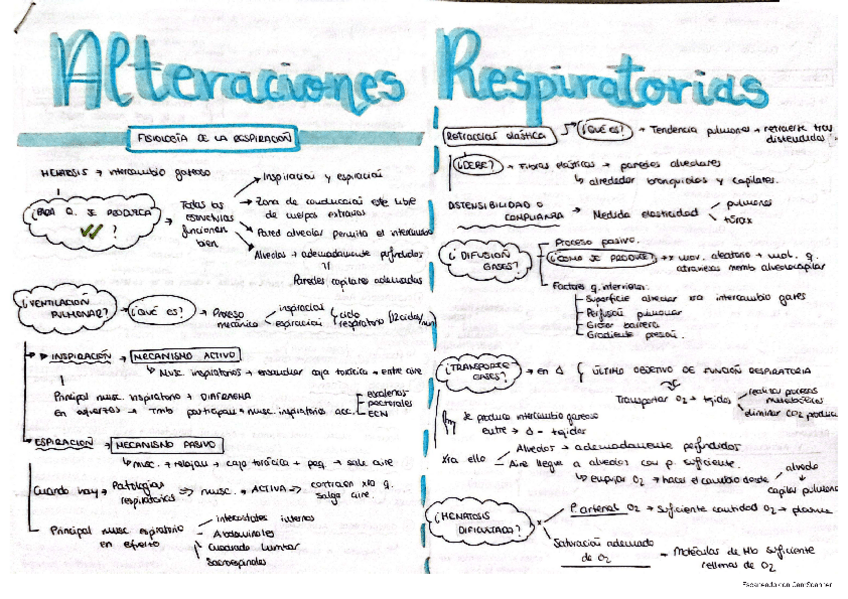 Alteraciones Respiratorias
FISIOLOGÍA DE LA RESPIRACIÓN
HEMATOSIS → intercambio gaseoso
¿PARA Q. SE PRODUZCA ?
Todas las estructuras funcionen bien
Inspiración y espiración
Zona de conducción esté libre de cuerpos extraños
Pared alveolar permita el intercambio
Alveolos + adecuadamente perfundidos
Paredes capilares adecuadas
¿VENTILACIÓN PULMONAR?
¿QUÉ ES?
→ Proceso mecánico
inspiración
espiración
ciclo respiratorio (12 ciclos/min)
INSPIRACIÓN → MECANISMO ACTIVO
Musc. inspiratorios → ensanchar caja torácica → entre aire
Principal musc. inspiratorio → DIAFRAGMA
En esfuerzos → Tmb participan + musc. inspiratorio acc.
escalenos
pectorales
ECM
ESPIRACIÓN → MECANISMO PASIVO
musc. → relajan → caja torácica + peq. → sale aire
Cuando hay → Patologías respiratorias => musc. → ACTIVA => contraen xa q. salga aire.
Principal musc. espiratorio en esfuerzo
Intercostales internos
Abdominales
Cuadrado lumbar
Sacroespinales
Retracción elástica → ¿QUÉ ES? → Tendencia pulmones → retraerse tras distendidos
¿DEBE? → Fibras elásticas → paredes alveolares
↳ alrededor bronquiolos y capilares.
DISTENSIBILIDAD O COMPLIANZA → Medida elasticidad
pulmones
tórax
¿DIFUSIÓN GASES?
Proceso pasivo.
¿CÓMO SE PRODUCE? → x mov. aleatorio → mol. q. atraviesan memb alveolocapilar
Factores q. intervienen:
Superficie alveolar xa intercambio gases
Perfusión pulmonar
Grosor barrera
Gradiente presión.
¿TRANSPORTE GASES? → en Δ
ÚLTIMO OBJETIVO DE FUNCIÓN RESPIRATORIA
Transportar O2 → tejidos
realizar procesos metabólicos
eliminar CO2 producido
Se produce intercambio gaseoso entre → Δ - tejidos
xa ello
Alveolos → adecuadamente perfundidos
Aire llegue a alveolos con p. suficiente.
↳ empujar O2 → hacia el cambio desde
alveolo
capilar pulmonar
¿HEMATOSIS DIFICULTADA? x
P. arterial O2 → Suficiente cantidad O2 → plasma
Saturación adecuada de O2 → Moléculas de Hb suficiente rellenas de O2
Escaneado con CamScanner